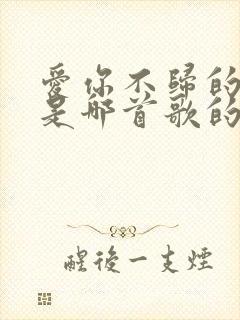 愛你不歸的
是那首歌的
醒後一支煙